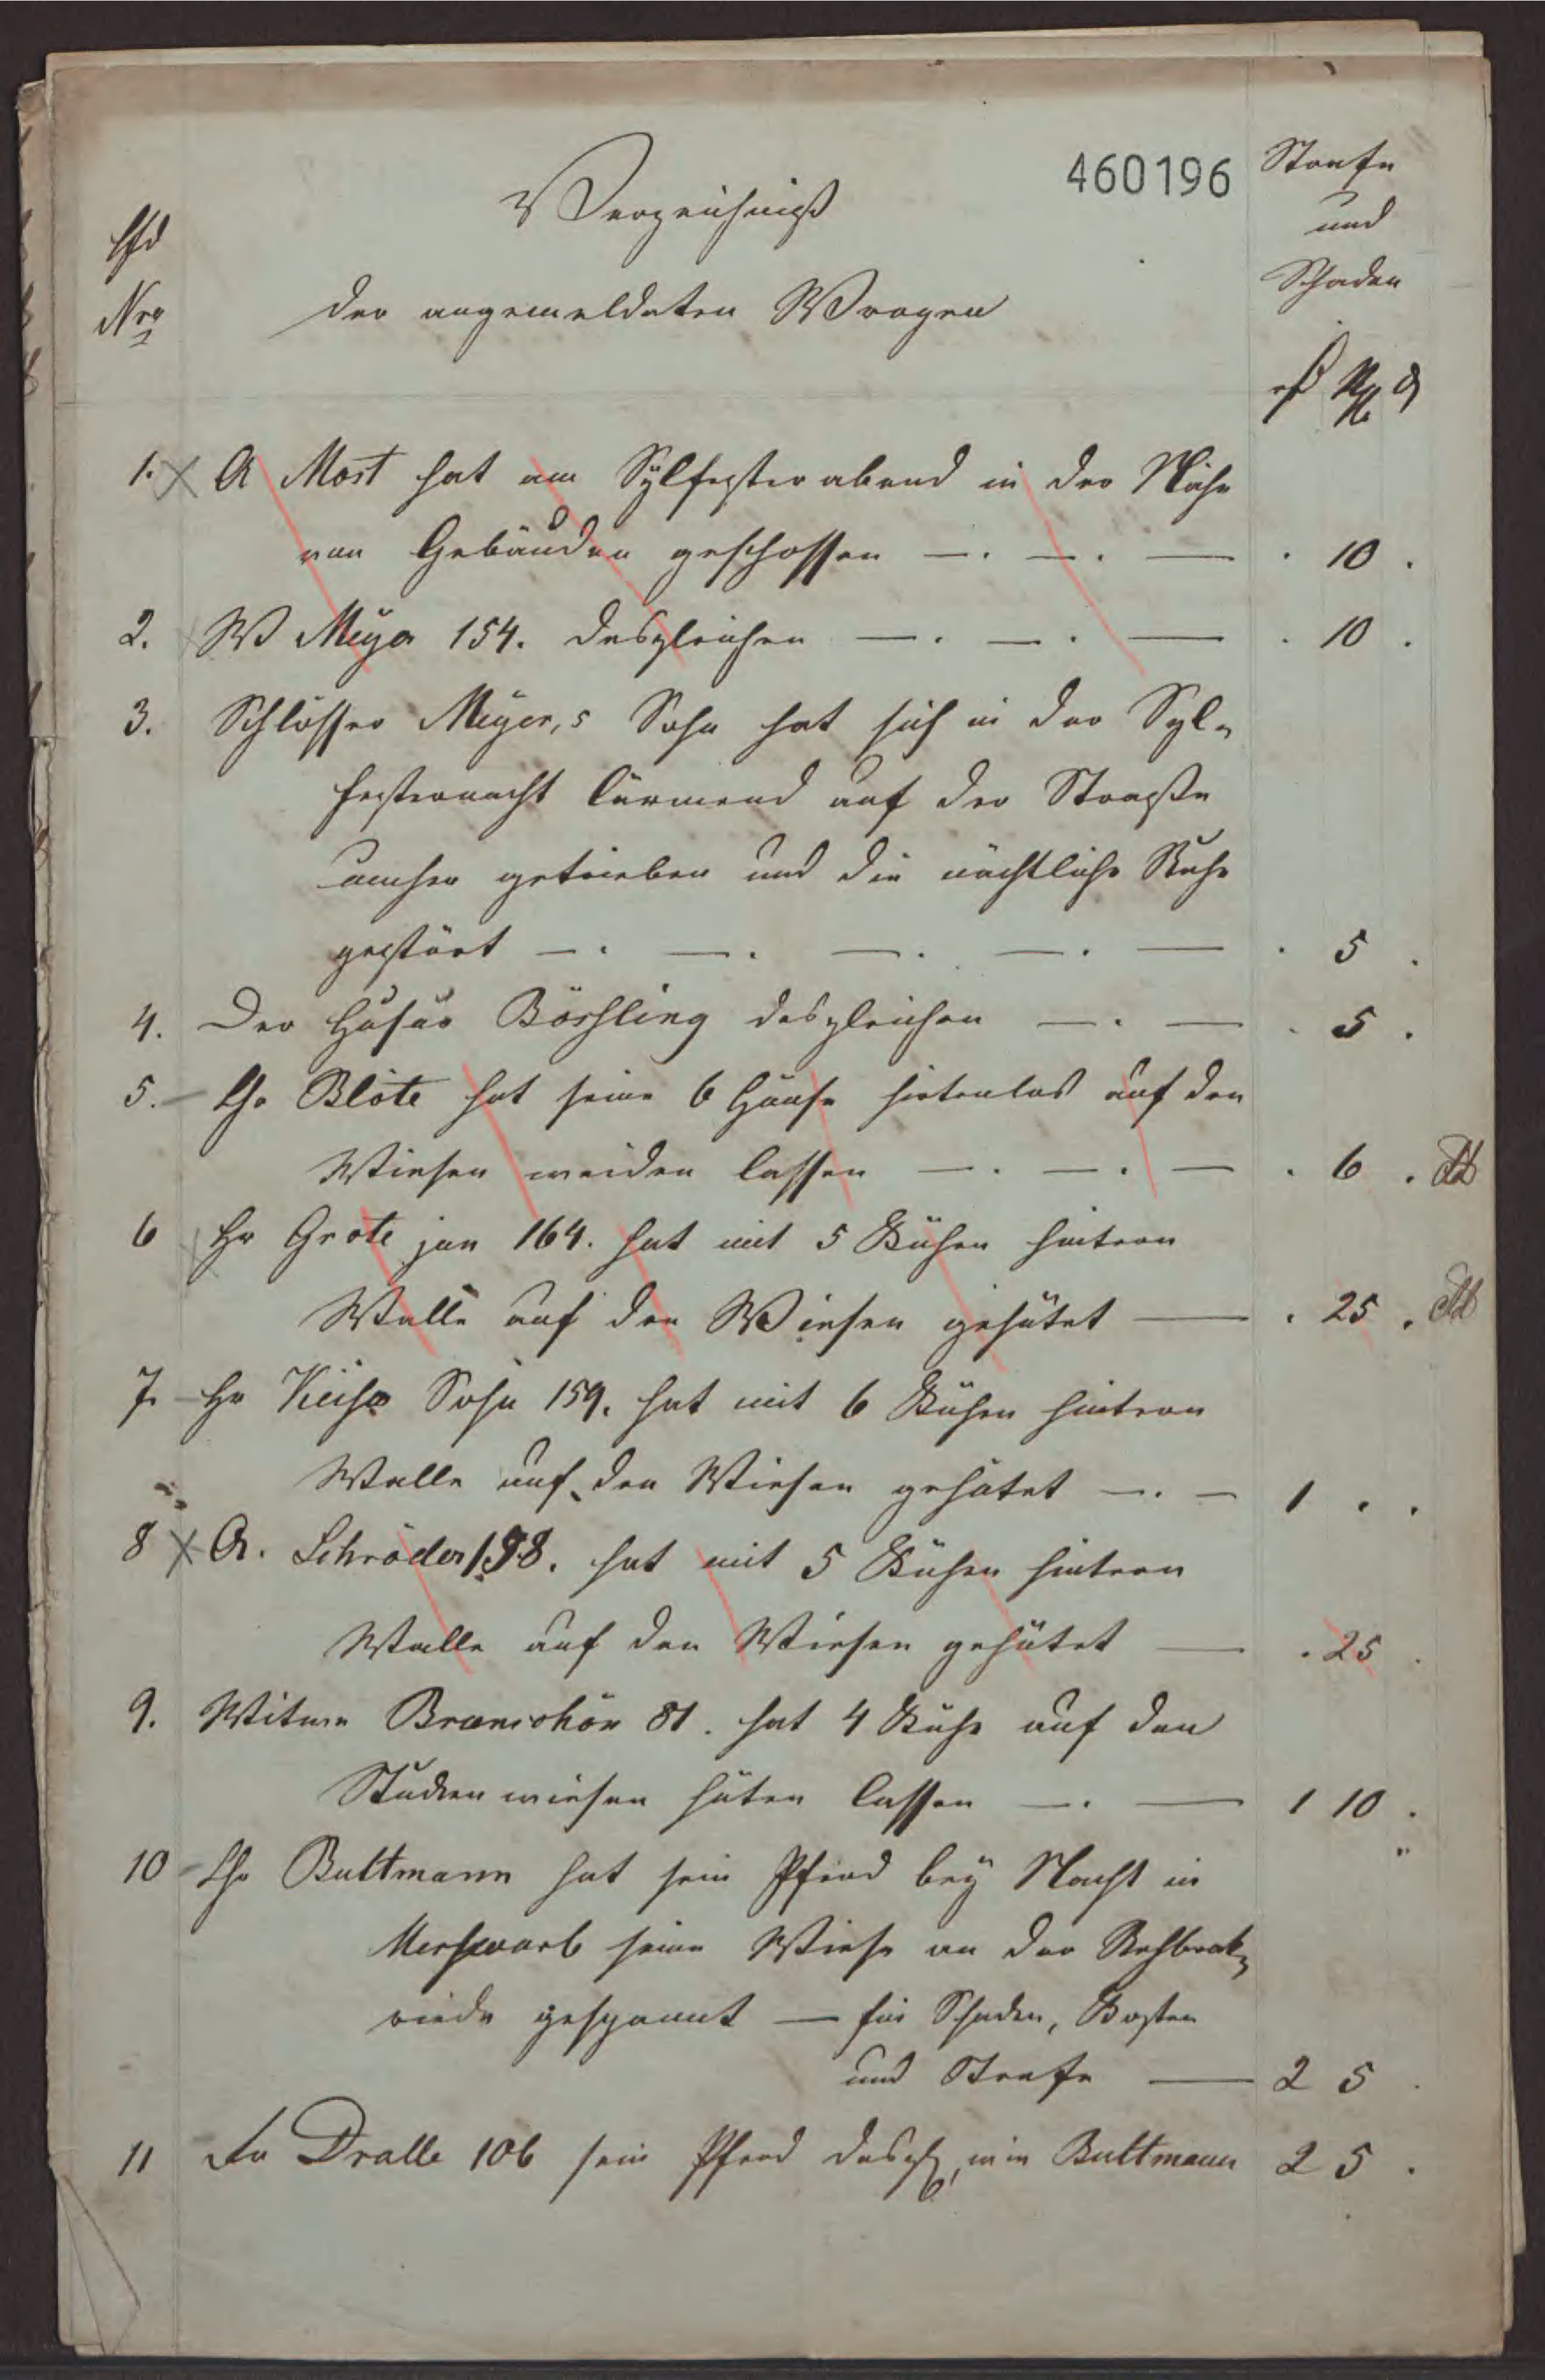 460196
Verzeichniß
der angemeldeten Wrogen
lfd
Nro
Strafe
und
Schaden
1. A Most hat am Sylfesterabend in der Nähe
von Gebäuden geschossen — . — . — . 10 .
2. W Meyer 154. desgleichen — . — . — . 10 .
3. Schlosser Meyer,s Sohn hat sich in der Syl=
festernacht lärmend auf der Straße
umher getrieben und die nächtliche Ruhe
gestört — . — . — . — . — . 5 .
4. Der Husar Börsling desgleichen — . — . 5 .
5. Chr Blöte hat seine 6 Gänse hirtenlos auf den
Wiesen weiden lassen — . — . — . 6 .
6 Hr Grote jun 164. hat mit 5 Kühen hintern
Walle auf den Wiesen gehütet — . 25 .
7. Hr Sohn 159. hat mit 6 Kühen hintern
Walle auf den Wiesen gehütet — . — 1 . .
8 A. Schröder 158. hat mit 5 Kühen hintern
Walle auf den Wiesen gehütet — . 25 .
9. Witwe 81. hat 4 Kühe auf den
wiesen hüten lassen — . — 1 10 .
10 Chr Bultmann hat sein Pferd bey Nacht in
seine Wiese an der Rehbrok=
riede gespannt — für Schaden, Kosten
und Strafe — 2 5 .
11 Fr Dralle 106 sein Pferd desgl, wie Bultmann 2 5 .